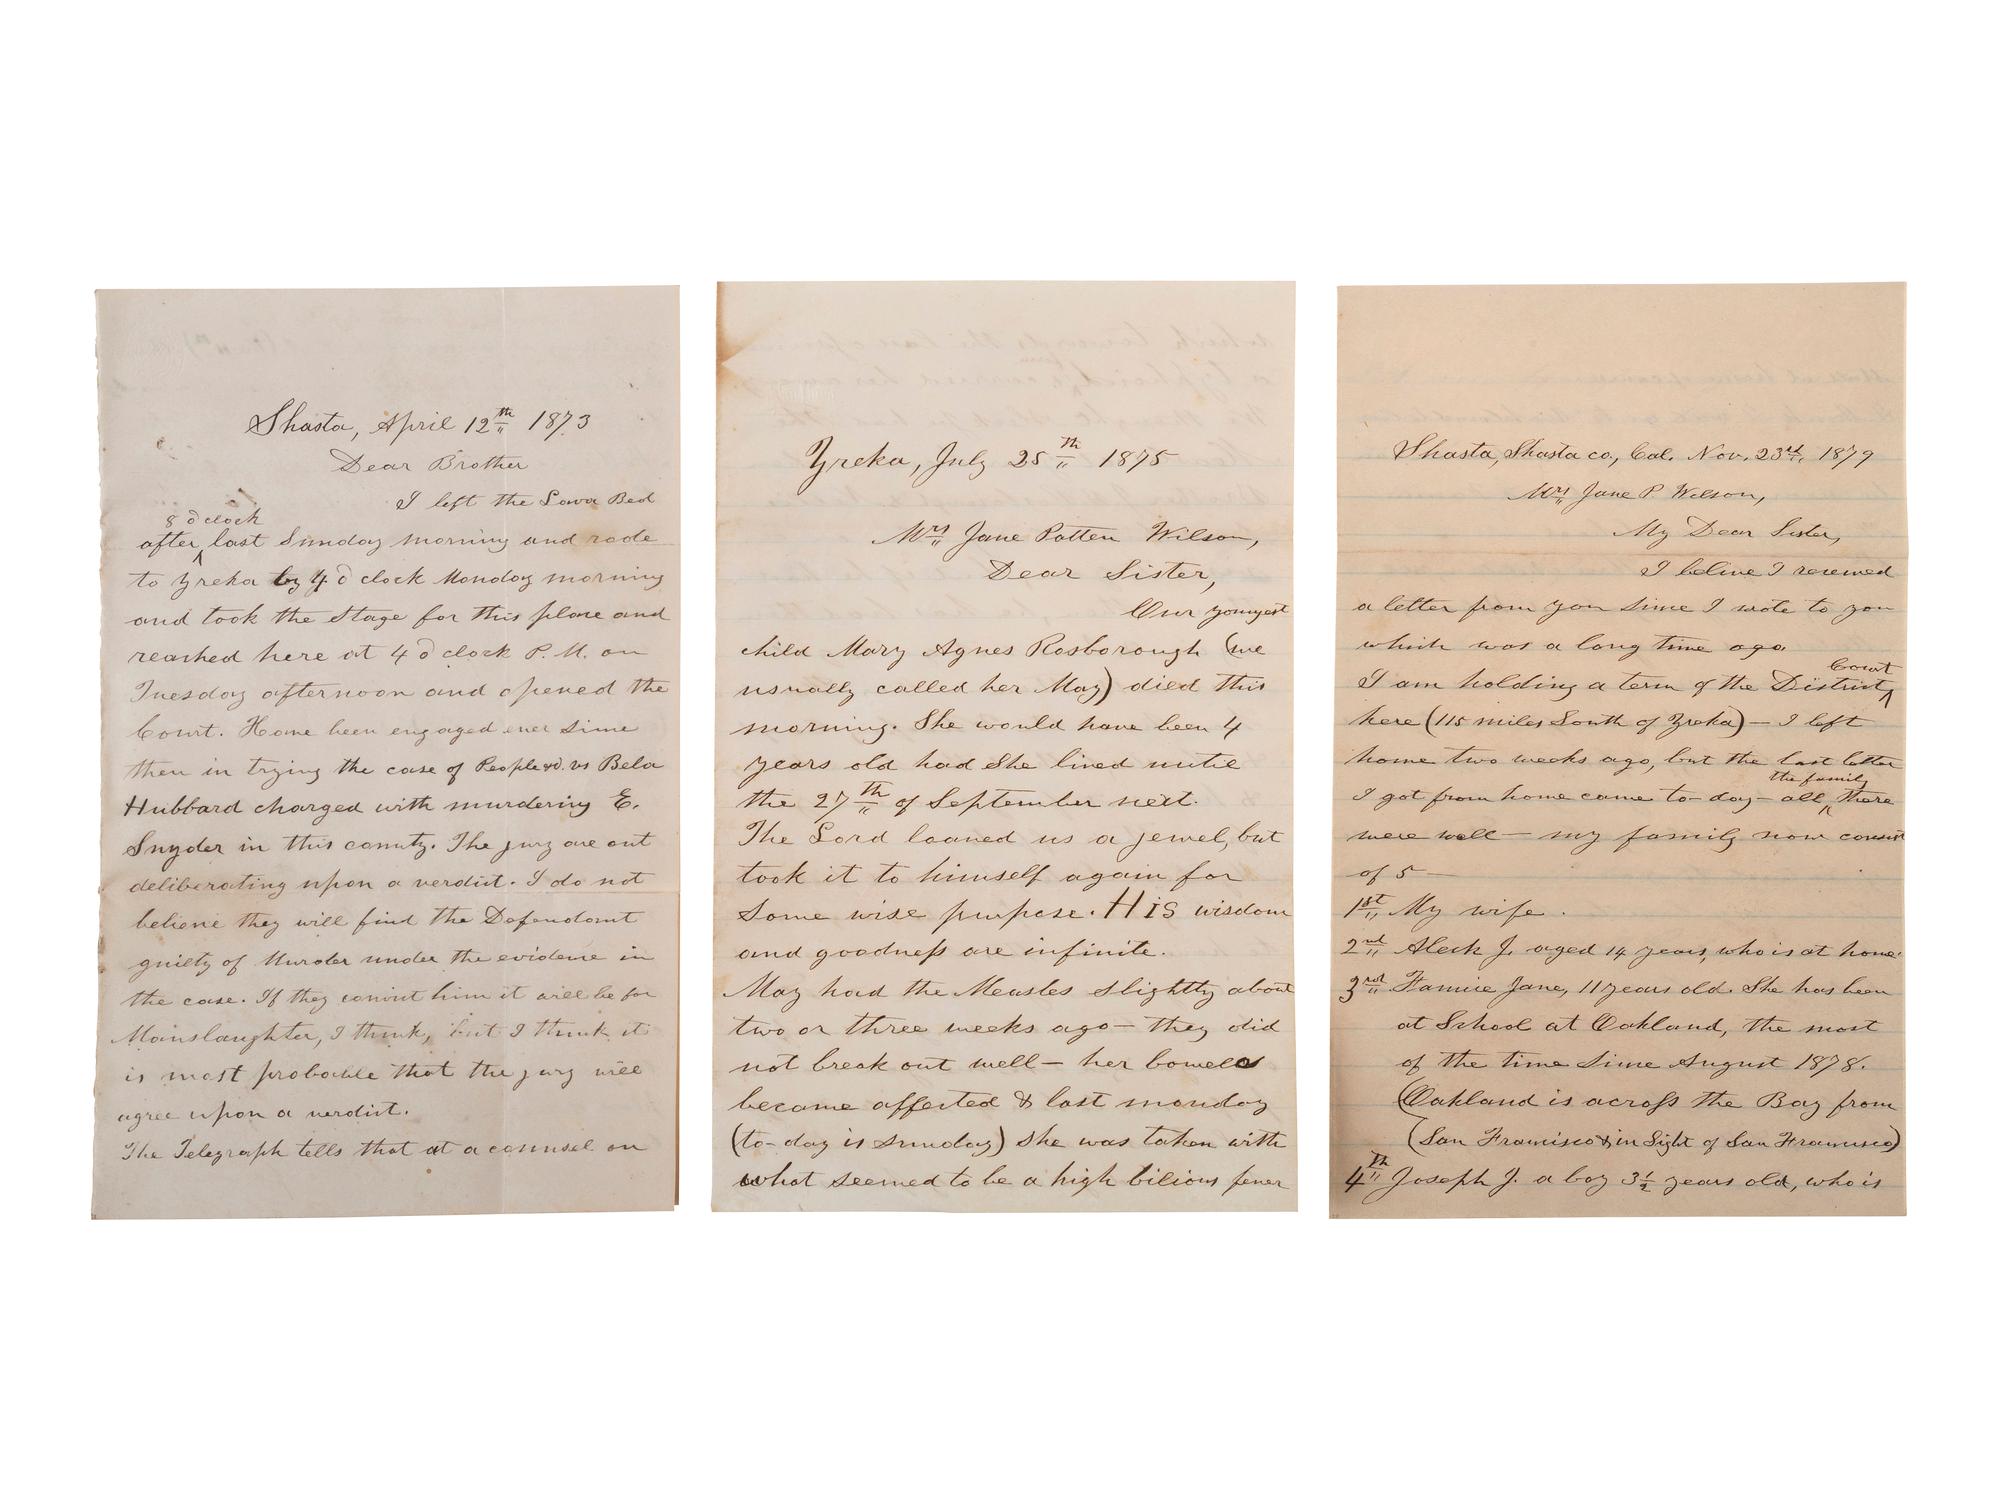 Shasta, April 12th 1873
Dear Brother
I left the Lava Bed
8 o'clock
after last Sunday morning and rode
to Yreka by 4 o'clock Monday morning
and took the stage for this place and
reached here at 4 o'clock P.M. on
Tuesday afternoon and opened the
Court. Have been engaged ever since
then in trying the case of People &c. vs Bela
Hubbard charged with murdering E.
Snyder in this county. The jury are out
deliberating upon a verdict. I do not
believe they will find the Defendant
guilty of Murder under the evidence in
the case. If they convict him it will be for
Manslaughter, I think, but I think it
is most probable that the jury will
agree upon a verdict.
The Telegraph tells that at a counsel on
Yreka, July 25th 1875
Mrs Jane Patten Wilson,
Dear Sister,
Our youngest
child Mary Agnes Rosborough (we
usually called her May) died this
morning. She would have been 4
years old had she lived until
the 27th of September next.
The Lord loaned us a jewel, but
took it to himself again for
some wise purpose. His wisdom
and goodness are infinite.
May had the Measles slightly about
two or three weeks ago — they did
not break out well — her bowels
became affected & last monday
(to-day is sunday) she was taken with
what seemed to be a high bilious fever
Shasta, Shasta co., Cal. Nov. 23rd, 1879
Mrs Jane P Wilson,
My Dear Sister,
I believe I received
a letter from you since I wrote to you
which was a long time ago.
Court
I am holding a term of the District
here (115 miles South of Yreka) — I left
home two weeks ago, but the last letter
the family
I got from home came to-day — all there
were well — my family now consist
of 5 —
1st My wife.
2nd Aleck J. aged 14 years, who is at home
3rd Fannie Jane, 11 years old. She has been
at School at Oakland, the most
of the time since August 1878.
(Oakland is across the Bay from
(San Francisco & in Sight of San Francisco)
4th Joseph J. a boy 3½ years old, who is